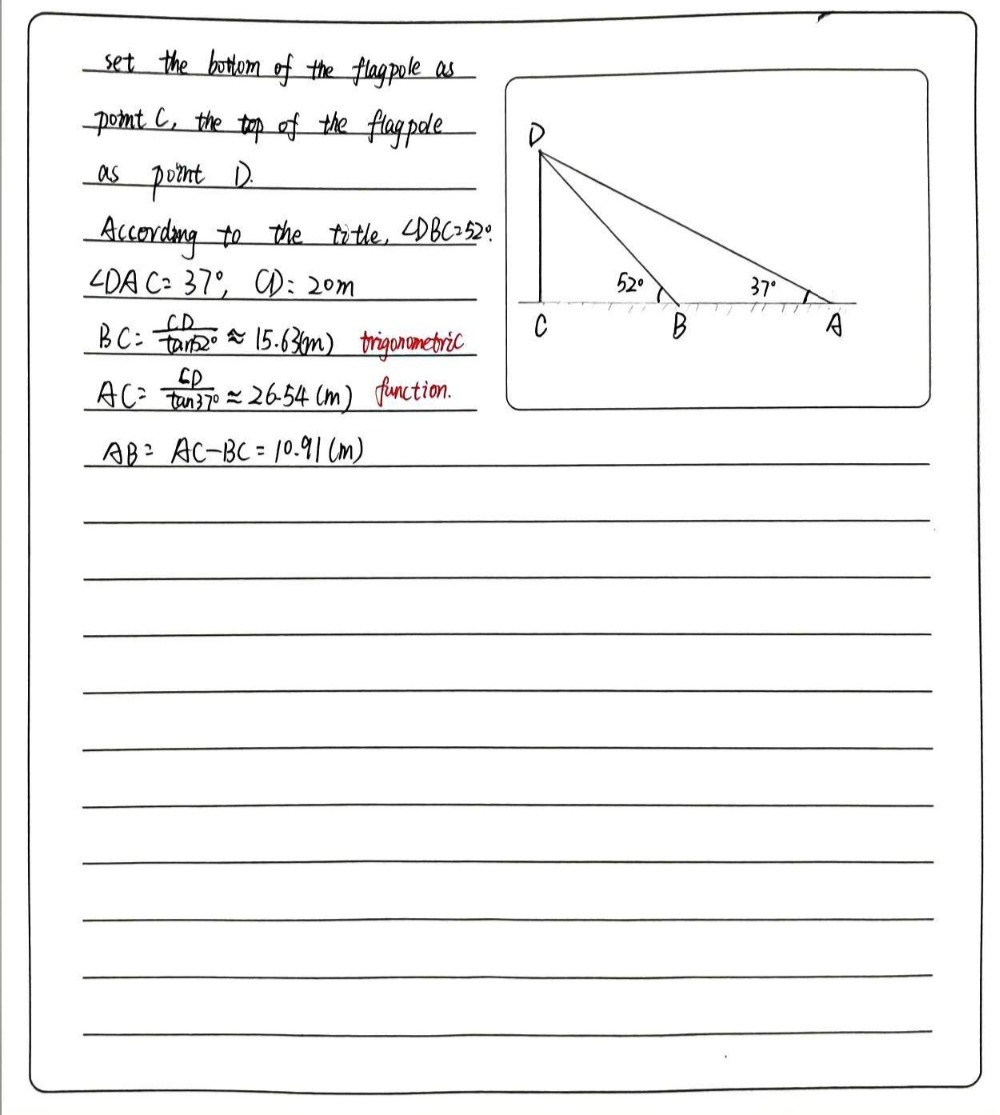 set the bottom of the flagpole as
point C, the top of the flagpole
as point D.
According to the title, ∠DBC=52°.
∠DAC= 37°, CD= 20m
BC= CD/tan52° ≈ 15.63(m) trigonometric
AC= CD/tan37° ≈ 26.54 (m) function.
AB= AC-BC = 10.91 (m)
D
52° 37°
C B A